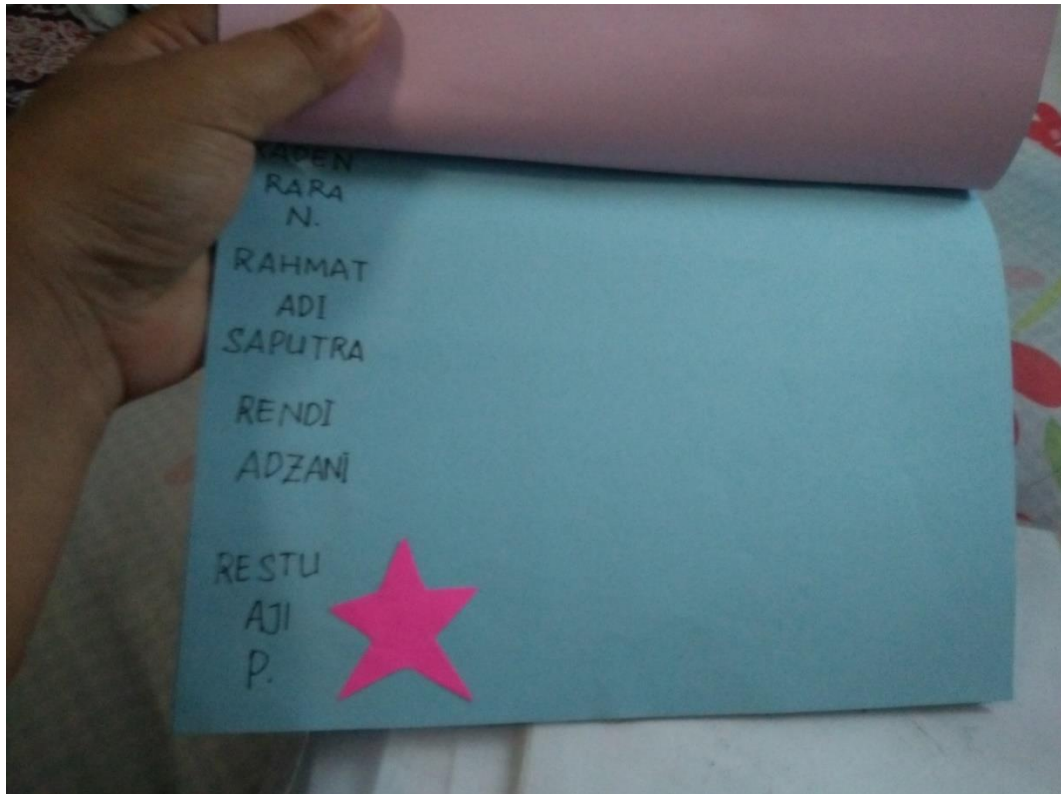 RADEN
RARA
N.
RAHMAT
ADI
SAPUTRA
RENDI
ADZANI
RESTU
AJI
P.